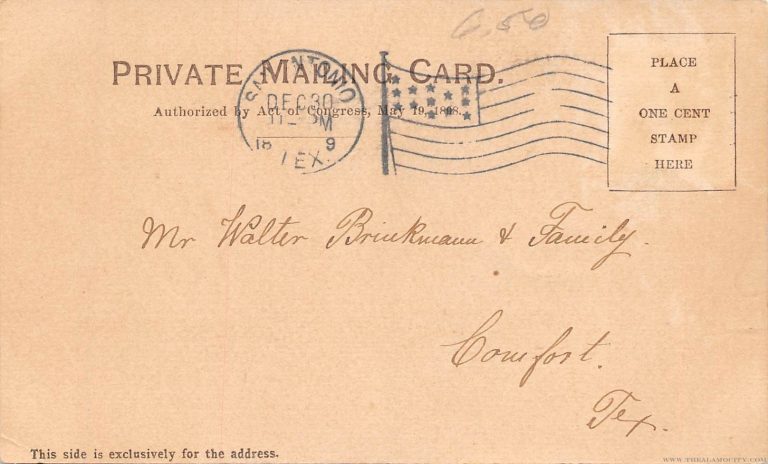 6.50
PRIVATE MAILING CARD.
Authorized by Act of Congress, May 19, 1898.
SAN ANTONIO
DEC 30
M
18 9
TEX.
PLACE
A
ONE CENT
STAMP
HERE
Mr Walter Brinkmann & Family.
Comfort.
Tex.
This side is exclusively for the address.
WWW.THEALAMOCITY.COM